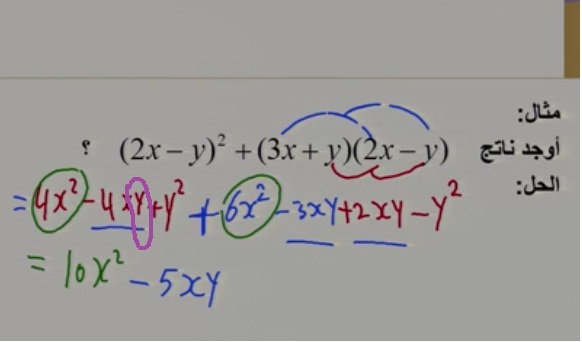 مثال:
أوجد ناتج (2x − y)² + (3x + y)(2x − y) ؟
الحل:
= 4x² − 4xy + y² + 6x² − 3xy + 2xy − y²
= 10x² − 5xy